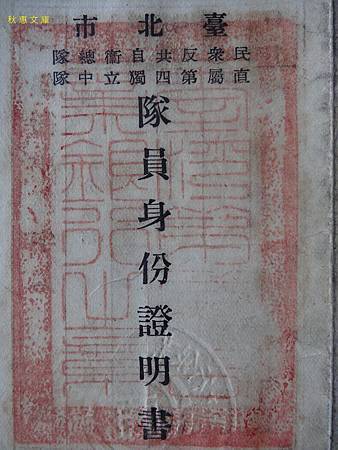 秋惠文庫
臺北市
民眾反共自衛總隊
直屬第四獨立中隊
隊員身份證明書